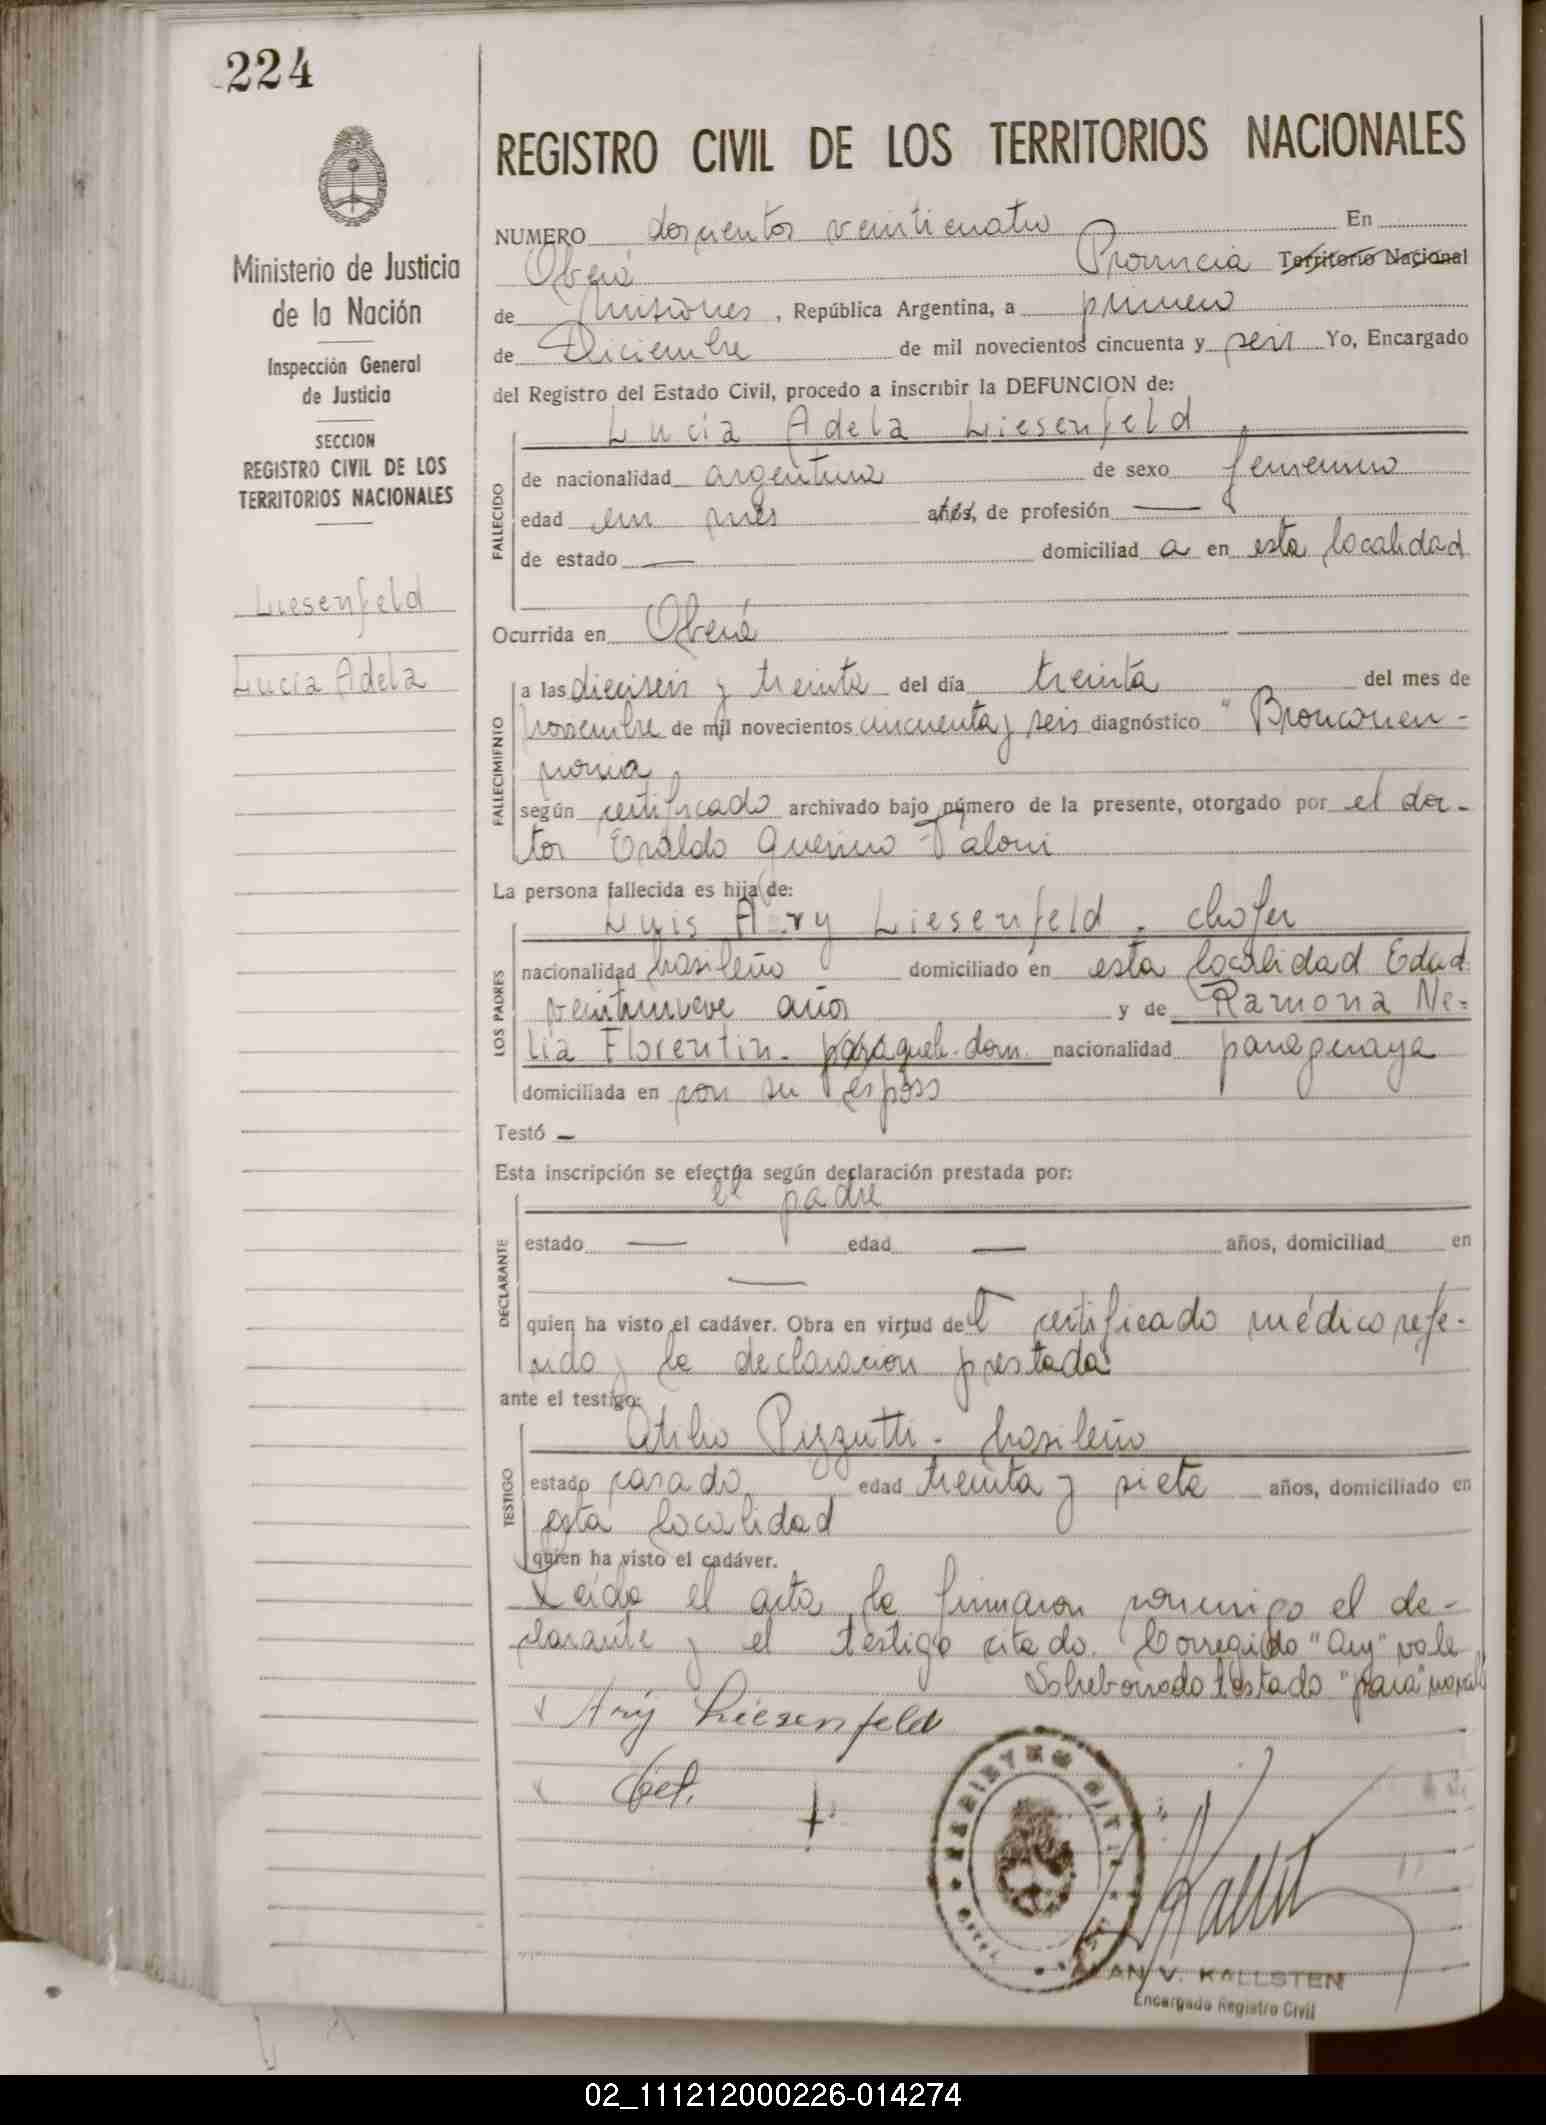 224
REGISTRO CIVIL DE LOS TERRITORIOS NACIONALES
Ministerio de Justicia
de la Nación
Inspección General
de Justicia
SECCION
REGISTRO CIVIL DE LOS
TERRITORIOS NACIONALES
Liesenfeld
Lucía Adela
NUMERO doscientos veinticuatro En
Oberá Provincia Territorio Nacional
de Misiones, República Argentina, a primero
de Diciembre de mil novecientos cincuenta y seis Yo, Encargado
del Registro del Estado Civil, procedo a inscribir la DEFUNCION de:
FALLECIDO
Lucía Adela Liesenfeld
de nacionalidad argentina de sexo femenino
edad un mes años, de profesión —
de estado — domiciliad a en esta localidad
Ocurrida en Oberá
FALLECIMIENTO
a las dieciseis y treinta del día treinta del mes de
noviembre de mil novecientos cincuenta y seis diagnóstico "Bronconeu-
monia
según certificado archivado bajo número de la presente, otorgado por el doc-
tor Eraldo Querino
La persona fallecida es hija de:
LOS PADRES
Luis Ary Liesenfeld. chofer
nacionalidad brasileño domiciliado en esta localidad Edad
veintinueve años y de Ramona Ne=
lia Florentin. para queh. dom. nacionalidad paraguaya
domiciliada en con su esposo
Testó —
Esta inscripción se efectúa según declaración prestada por:
DECLARANTE
el padre
estado — edad — años, domiciliad en
—
quien ha visto el cadáver. Obra en virtud del certificado médico refe-
rido y la declaración prestada
ante el testigo:
TESTIGO
Atilio Pizzutti - brasileño
estado casado edad treinta y siete años, domiciliado en
esta localidad
quien ha visto el cadáver.
Leída el acta la firmaron conmigo el de-
clarante y el testigo citado. Corregido "Ary" vale
Sobreborrado testado "para" no vale
Ary Liesenfeld
ALAN V. KALLSTEN
Encargado Registro Civil
02_111212000226-014274